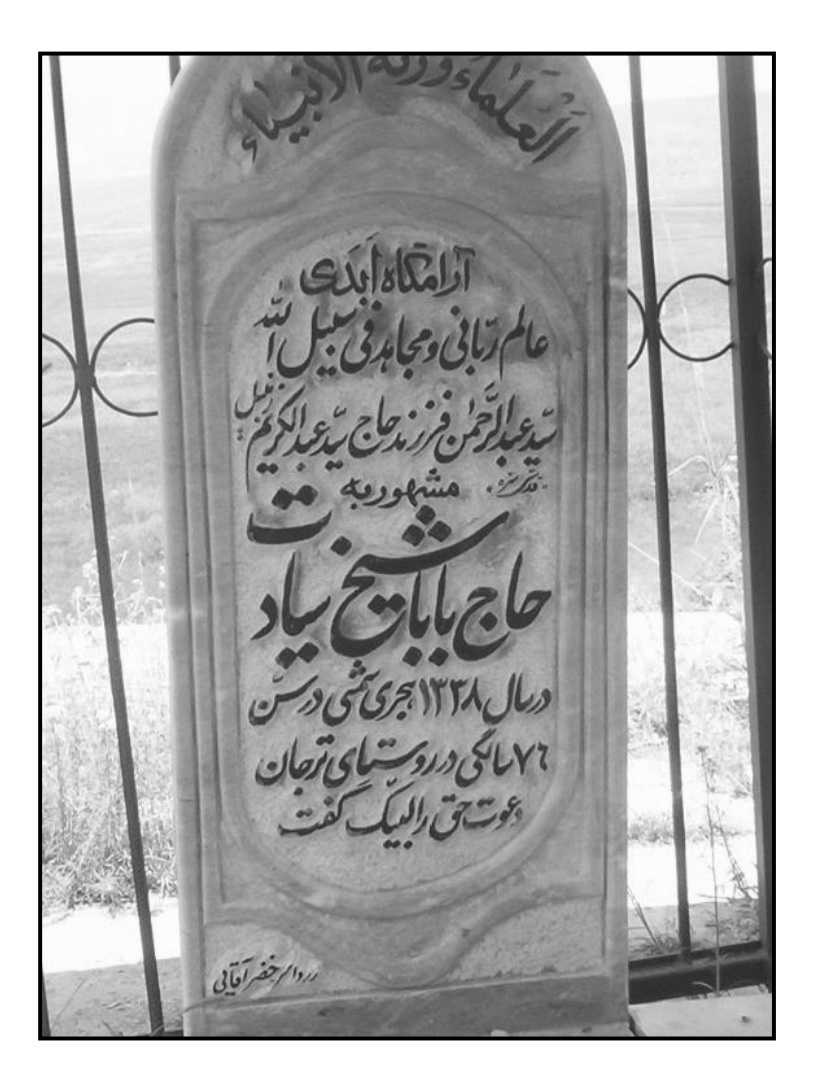 العلماء ورثة الأنبیاء
آرامگاه أبدی
عالم ربّانی و مجاهد فی سبیل اللّه
سیّد عبدالرّحمٰن فرزند حاج سیّد عبدالکریم زنبیل
مشهور به
حاج باباشیخ سیادت
در سال ۱۳۳۸ هجری شمسی در سنّ
۷٦ سالگی در روستای ترجان
دعوت حق را لبیک گفت
خضر آقائی